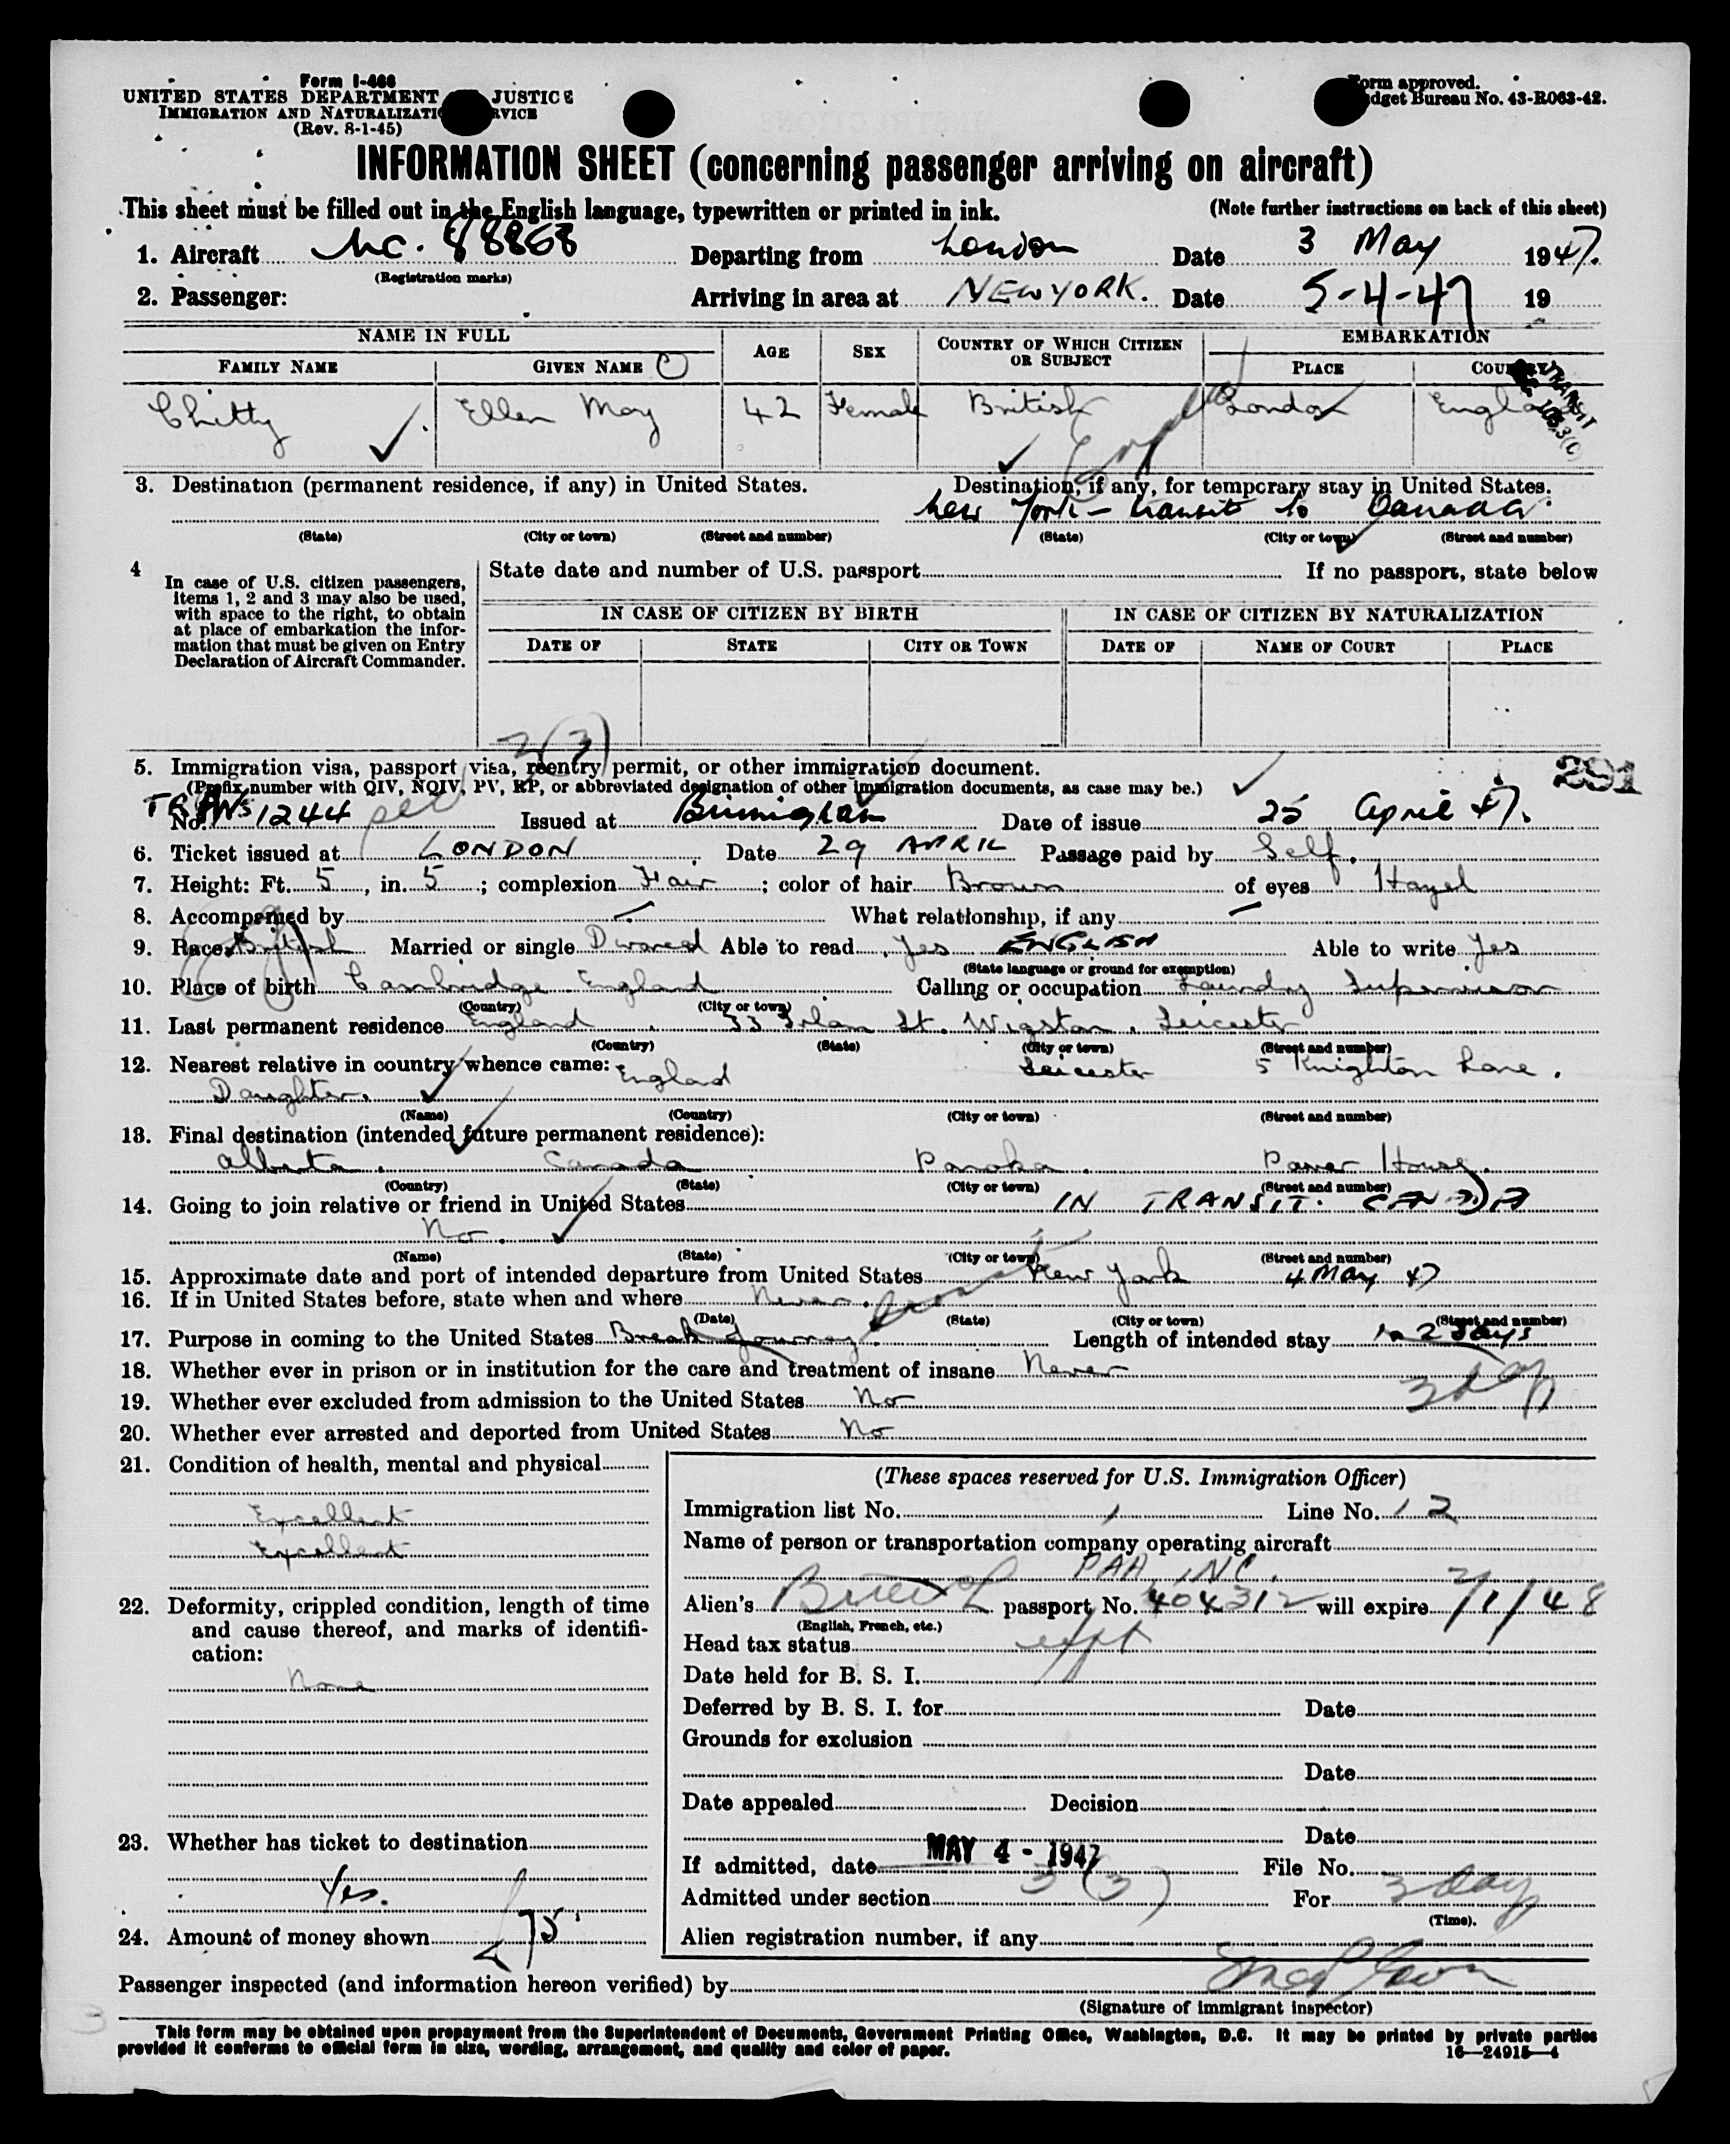 Form I-466
UNITED STATES DEPARTMENT JUSTICE
IMMIGRATION AND NATURALIZATI RVICE
(Rev. 8-1-45)
Form approved.
dget Bureau No. 43-R063-42.
INFORMATION SHEET (concerning passenger arriving on aircraft)
This sheet must be filled out in the English language, typewritten or printed in ink. (Note further instructions on back of this sheet)
1. Aircraft NC. 88868 Departing from London Date 3 May 1947.
(Registration marks)
2. Passenger: Arriving in area at NEW YORK. Date 5-4-47 19
NAME IN FULL AGE SEX COUNTRY OF WHICH CITIZEN OR SUBJECT EMBARKATION
FAMILY NAME GIVEN NAME PLACE COUNTRY
TRANSIT
Chitty Ellen May 42 Female British London England
3. Destination (permanent residence, if any) in United States. Destination, if any, for temporary stay in United States.
New York - transit to Canada.
(State) (City or town) (Street and number) (State) (City or town) (Street and number)
4 In case of U.S. citizen passengers, items 1, 2 and 3 may also be used, with space to the right, to obtain at place of embarkation the information that must be given on Entry Declaration of Aircraft Commander.
State date and number of U.S. passport If no passport, state below
IN CASE OF CITIZEN BY BIRTH IN CASE OF CITIZEN BY NATURALIZATION
DATE OF STATE CITY OR TOWN DATE OF NAME OF COURT PLACE
3(3)
5. Immigration visa, passport visa, reentry permit, or other immigration document. 291
(Prefix number with QIV, NQIV, PV, RP, or abbreviated designation of other immigration documents, as case may be.)
No. TRANS 1244 Issued at Birmingham Date of issue 25 April 47.
6. Ticket issued at LONDON Date 29 APRIL Passage paid by Self.
7. Height: Ft. 5, in. 5; complexion Fair; color of hair Brown of eyes Hazel
8. Accompanied by - What relationship, if any -
9. Race British Married or single Divorced Able to read Yes ENGLISH Able to write Yes
(State language or ground for exemption)
10. Place of birth Cambridge England Calling or occupation Laundry Supervisor
(Country) (City or town)
11. Last permanent residence England. 33 St. Wigston. Leicester
(Country) (State) (City or town) (Street and number)
12. Nearest relative in country whence came: England Leicester 5 Knighton Lane.
Daughter.
(Name) (Country) (City or town) (Street and number)
13. Final destination (intended future permanent residence):
Alberta. Canada Ponoka. Power House.
(Country) (State) (City or town) (Street and number)
14. Going to join relative or friend in United States IN TRANSIT. CANADA
No.
(Name) (State) (City or town) (Street and number)
15. Approximate date and port of intended departure from United States New York 4 May 47
16. If in United States before, state when and where Never.
(Date) (State) (City or town) (Street and number)
17. Purpose in coming to the United States Break Journey. Length of intended stay 1 to 2 days
18. Whether ever in prison or in institution for the care and treatment of insane Never
3 days
19. Whether ever excluded from admission to the United States No
20. Whether ever arrested and deported from United States No
21. Condition of health, mental and physical
Excellent
Excellent
22. Deformity, crippled condition, length of time and cause thereof, and marks of identification:
None
23. Whether has ticket to destination
Yes.
24. Amount of money shown £75
(These spaces reserved for U.S. Immigration Officer)
Immigration list No. 1 Line No. 12
Name of person or transportation company operating aircraft
PAA, INC.
Alien's British passport No. 404312 will expire 7/1/48
(English, French, etc.)
Head tax status
Date held for B. S. I.
Deferred by B. S. I. for Date
Grounds for exclusion
Date
Date appealed Decision
Date
If admitted, date MAY 4 - 1947 File No.
Admitted under section 3(3) For 3 days
(Time).
Alien registration number, if any
Passenger inspected (and information hereon verified) by
(Signature of immigrant inspector)
This form may be obtained upon prepayment from the Superintendent of Documents, Government Printing Office, Washington, D.C. It may be printed by private parties
provided it conforms to official form in size, wording, arrangement, and quality and color of paper. 16-24915-4